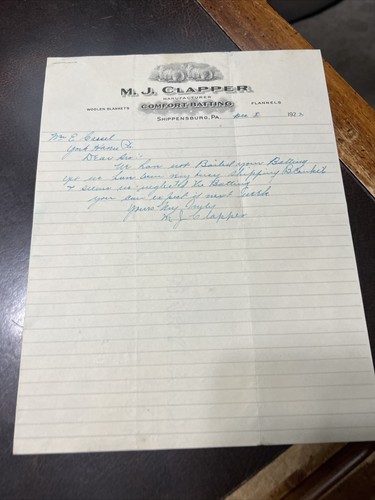 M. J. CLAPPER
MANUFACTURER
WOOLEN BLANKETS COMFORT BATTING FLANNELS
SHIPPENSBURG, PA. Dec 8 192
Mr E
York Pa
Dear Sir:
We have not Bailed your Batting
yet we have been very busy Shipping Blankets
the Batting
you can expect it next week
Yours Very Truly
M. J. Clapper